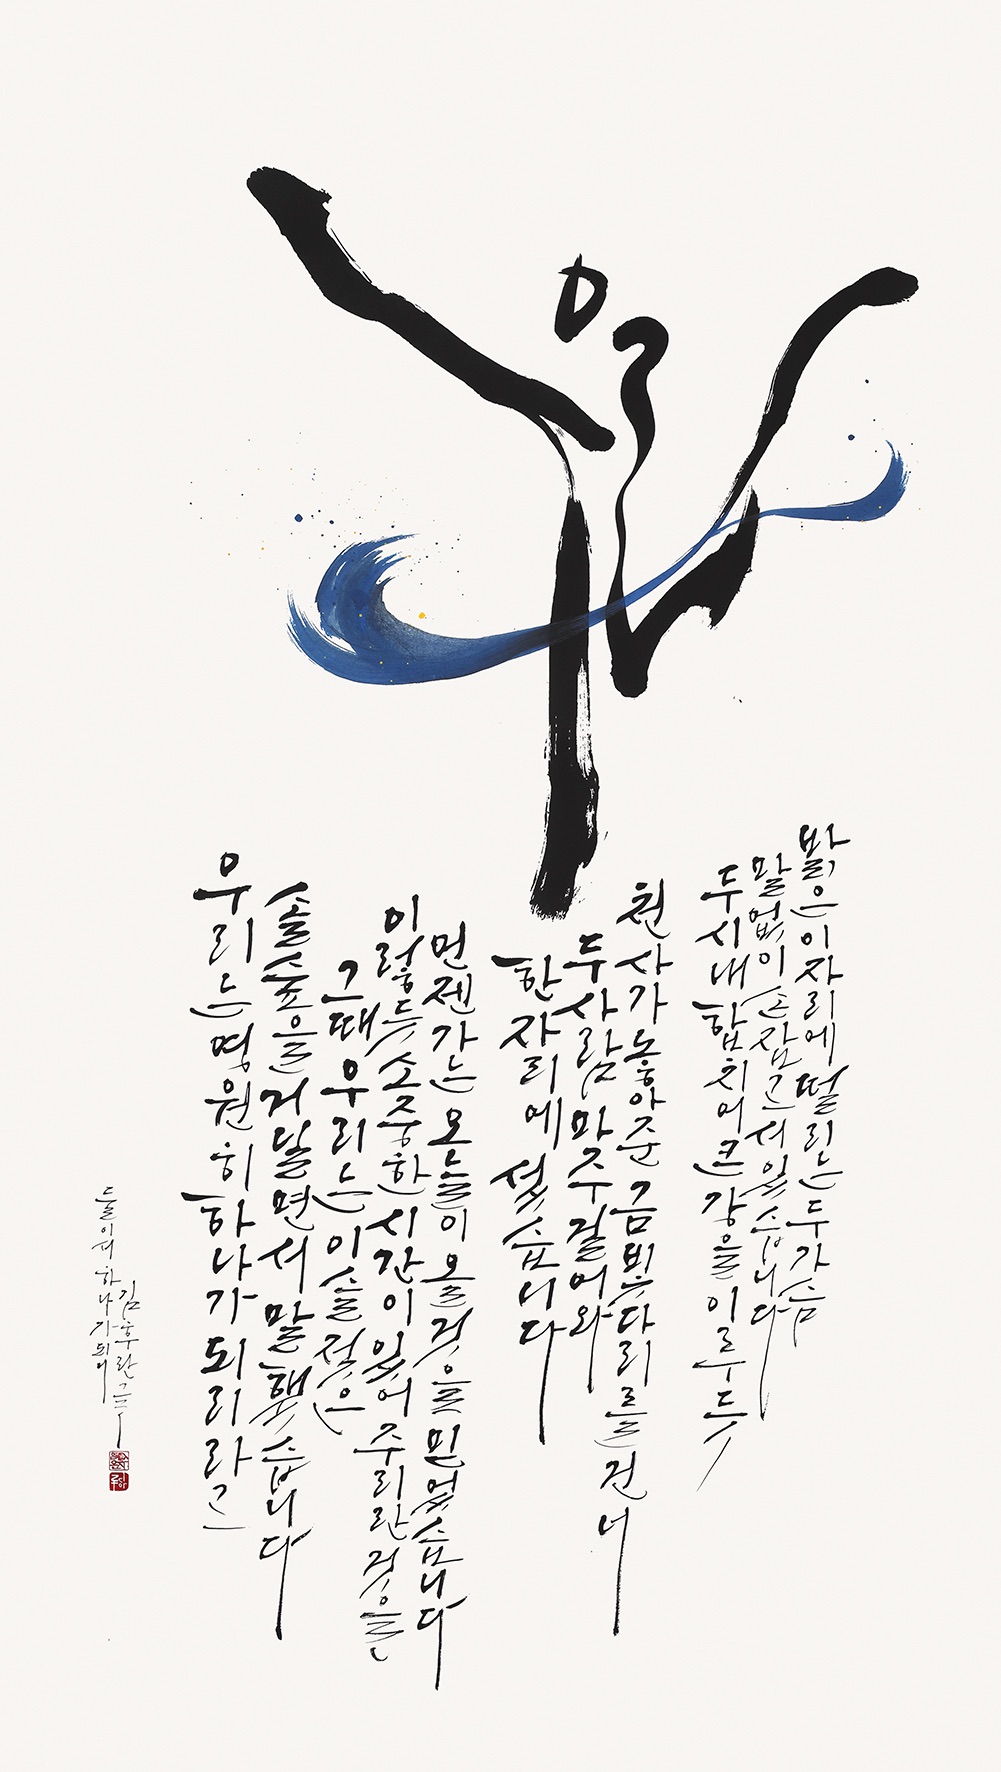 밝은 이 자리에 떨리는 두 가슴
말없이 손잡고 서 있습니다
두 시내 합치어 큰 강을 이루듯
천사가 놓아준 금빛 다리를 건너
두 사람 마주 걸어와
한자리에 섰습니다
먼젠가는 오늘이 올 것을 믿었습니다
이렇듯 소중한 시간이 있어 주리란 것을
그때 우리는 이슬 젖은
솔숲을 거닐면서 말했습니다
우리는 영원히 하나가 되리라고
김후란 글
둘이서 하나가 되어